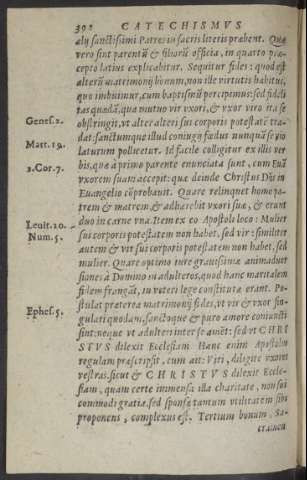 392 CATECHISMVS
alij sanctissimi Patres in sacris literis præbent. Quæ
vero sint parentũ & filiorũ officia, in quarto præ-
cepto latius explicabitur. Sequitur fides: quod est
alterũ matrimonij bonum, non ille virtutis habitus,
quo imbuimur, cum baptismũ percipimus: sed fideli
tas quædã, qua mutuo vir vxori, & vxor viro ita se
obstringit, vt alter alteri sui corporis potestatẽ tra-
Genes. 2.
dat: sanctumque illud coniugij fœdus nunquã se vio
Matt. 19.
laturum pollicetur. Id facile colligitur ex illis ver-
1. Cor. 7.
bis, quæ à primo parente enunciata sunt, cum Euã
vxorem suam accepit: quæ deinde Christus Dñs in
Euangelio cõprobauit. Quare relinquet homo pa-
trem & matrem, & adhærebit vxori suæ, & erunt
duo in carne vna. Item ex eo Apostoli loco: Mulier
Leuit. 20.
sui corporis potestatem non habet, sed vir: similiter
Num. 5.
autem & vir sui corporis potestatem non habet, sed
mulier. Quare optimo iure grauissimæ animaduer
siones à Domino in adulteros, quod hanc maritalem
fidem frangãt, in veteri lege constitutæ erant. Po-
Ephes. 5.
stulat præterea matrimonij fides, vt vir & vxor sin-
gulari quodam, sanctoque & puro amore coniuncti
sint: neque vt adulteri inter se amẽt: sed vt CHRI
STVS dilexit Ecclesiam. Hanc enim Apostolus
regulam præscripsit, cum ait: Viri, diligite vxores
vestras, sicut & CHRISTVS dilexit Eccle-
siam, quam certe immensa illa charitate, non sui
commodi gratia, sed sponsæ tantum vtilitatem sibi
proponens, complexus est. Tertium bonum, Sa-
cramen